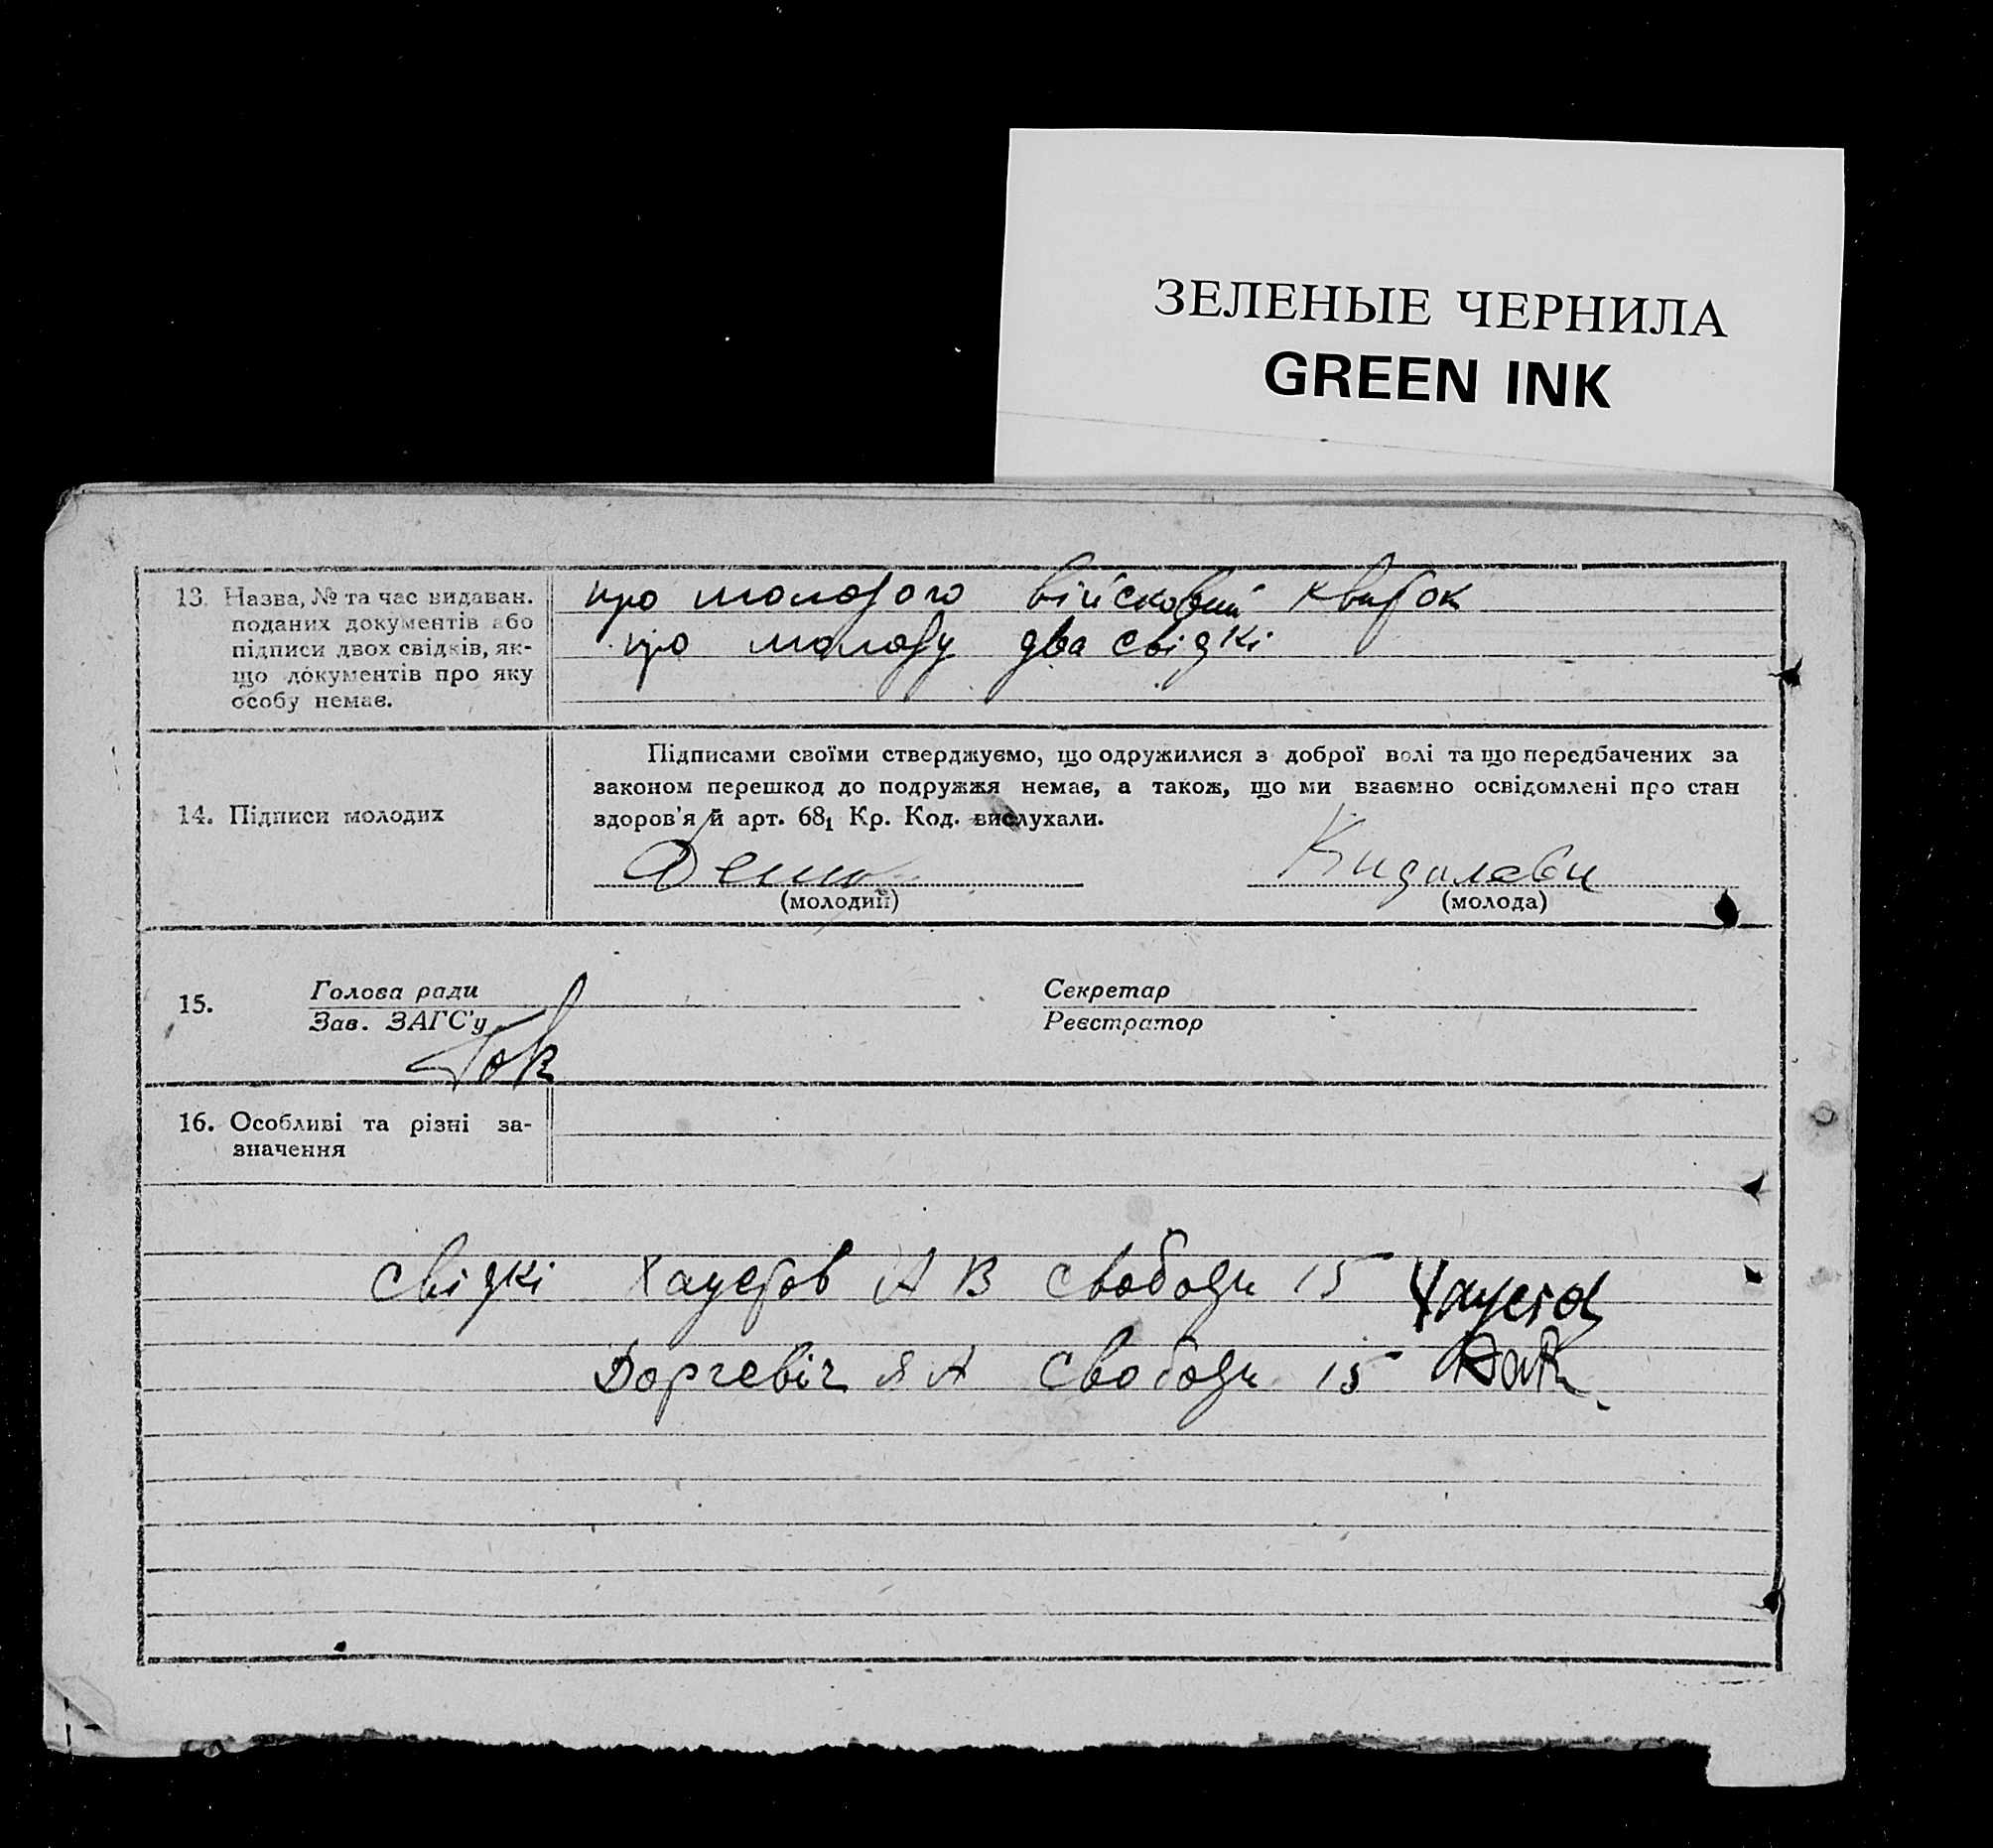 ЗЕЛЕНЫЕ ЧЕРНИЛА
GREEN INK
13. Назва, № та час видаван.
поданих документів або
підписи двох свідків, як-
що документів про яку
особу немає.
про молодого військовий квиток
про молоду два свідкі
14. Підписи молодих
Підписами своїми стверджуємо, що одружилися з доброї волі та що передбачених за
законом перешкод до подружжя немає, а також, що ми взаємно освідомлені про стан
здоров'я й арт. 68₁ Кр. Код. вислухали.
(молодий)
(молода)
15.
Голова ради
Зав. ЗАГС'у
Секретар
Реєстратор
16. Особливі та різні за-
значення
свідкі Хаустов А В Свободи 15
Доргевіч Я А Свободи 15